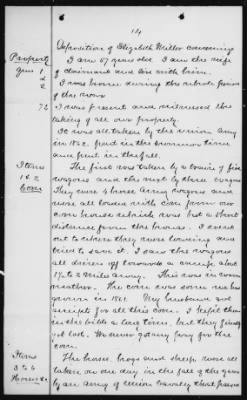 14
Deposition of Elizabeth Miller concerning
Property
I am 57 years old. I am the wife
Gen 1
of claimant and live with him.
2
I was home during the whole
of the war.
72
I was present and witnessed the
taking of all our property.
It was all taken by the union army
in 1862. part in the summer time
and part in the fall.
Items
The first was taken by a
1 & 2
wagons and the next by three wagons
Corn
They were 4 horse army wagons and
were all loaded with corn from our
corn house which was but a short
distance from the house. I went
out to where they were loading and
tried to save it. I saw the wagons
all driven off towards a
1½ to 2 miles away. This was in warm
weather. The corn was some we has
grown in 1861. My husband got
receipt for all this corn. I kept them
in the a long time, but they finally
got lost. We never got any pay for the
corn.
Items
The horse, hogs and sheep were all
3 to 6
taken on one day in the fall of the year
Horse &c
by an army of Union Cavalry that passed